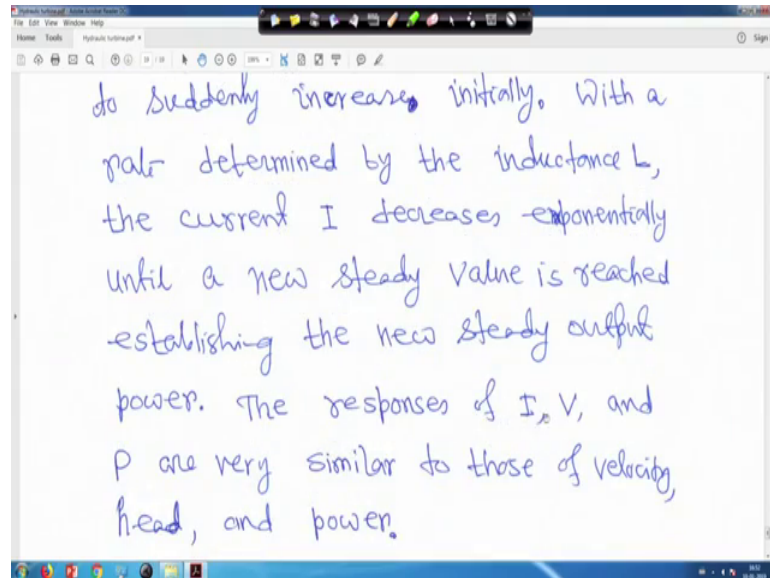 Hydraulic turbine.pdf - Adobe Acrobat Reader DC
File Edit View Window Help
Home Tools Hydraulic turbine.pdf × Sign
to suddenly increase, initially. With a
rate determined by the inductance L,
the current I decreases exponentially
until a new steady value is reached
establishing the new steady output
power. The responses of I, V, and
P are very similar to those of velocity,
head, and power.